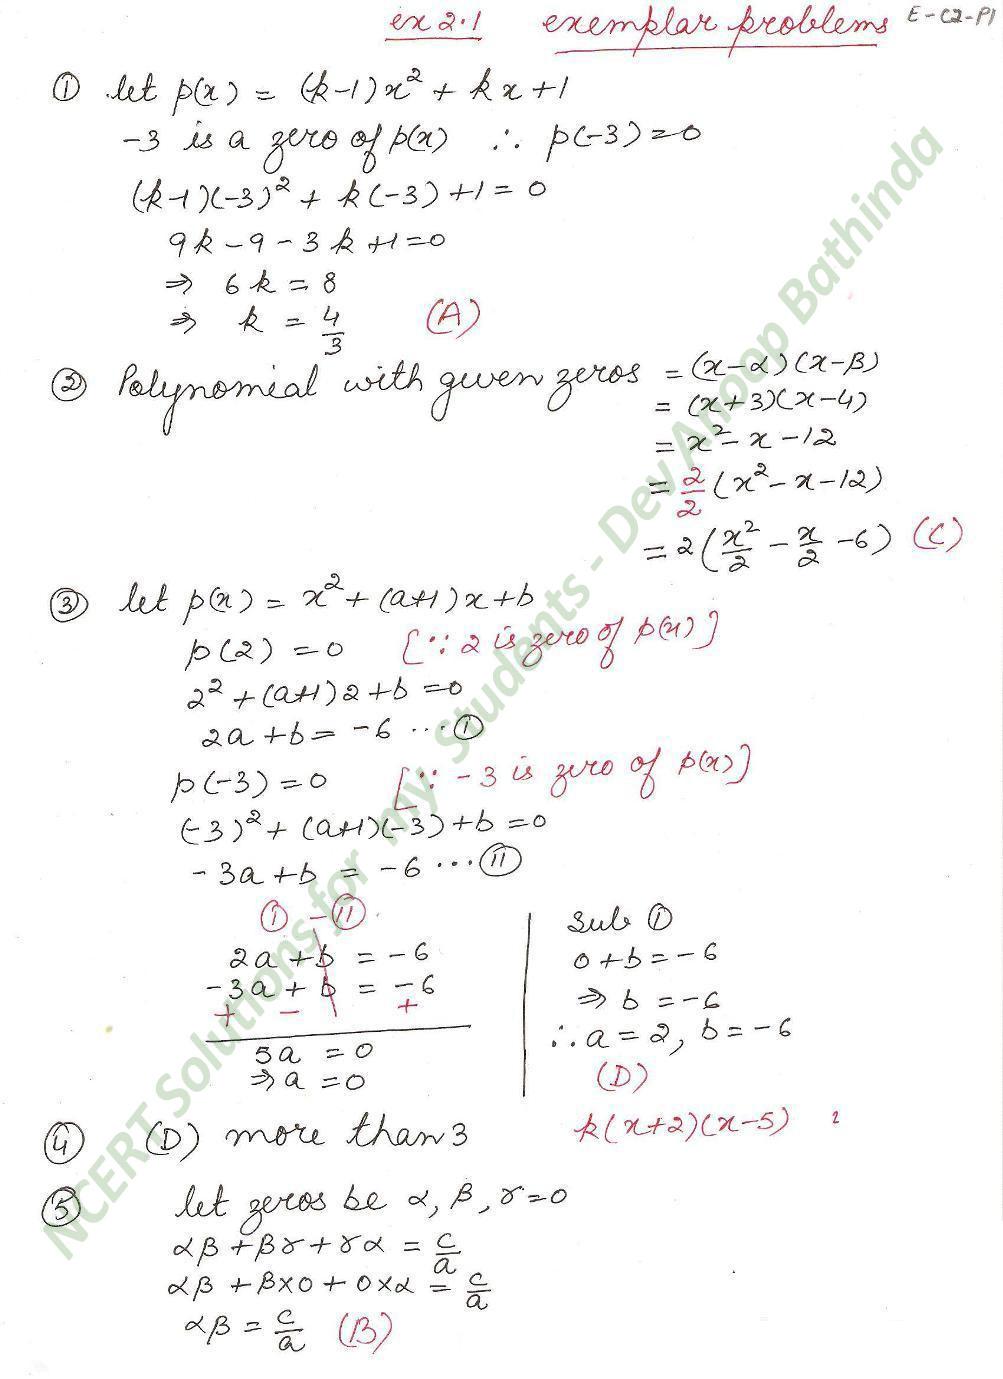 ex 2.1 exemplar problems E-C2-P1
① let p(x) = (k-1)x² + kx+1
-3 is a zero of p(x) ∴ p(-3)=0
(k-1)(-3)² + k(-3)+1=0
9k-9-3k+1=0
⇒ 6k = 8
⇒ k = 4/3 (A)
② Polynomial with given zeros = (x-α)(x-β)
= (x+3)(x-4)
= x²-x-12
= 2/2 (x²-x-12)
= 2(x²/2 - x/2 -6) (C)
③ let p(x) = x²+(a+1)x+b
p(2) = 0 [∵ 2 is zero of p(x)]
2²+(a+1)2+b=0
2a+b=-6 ...Ⓘ
p(-3)=0 [∵ -3 is zero of p(x)]
(-3)²+(a+1)(-3)+b=0
-3a+b = -6 ...Ⓘ Ⓘ
Ⓘ - ⒾⒾ
2a+b = -6
-3a+b = -6
+ - +
5a = 0
⇒ a = 0
Sub Ⓘ
0+b=-6
⇒ b = -6
∴ a = 2, b = -6
(D)
④ (D) more than 3 k(x+2)(x-5)
⑤ let zeros be α, β, γ=0
αβ+βγ+γα = c/a
αβ+β×0+0×α = c/a
αβ = c/a (B)
NCERT Solutions for my Students - Dev Anoop Bathinda